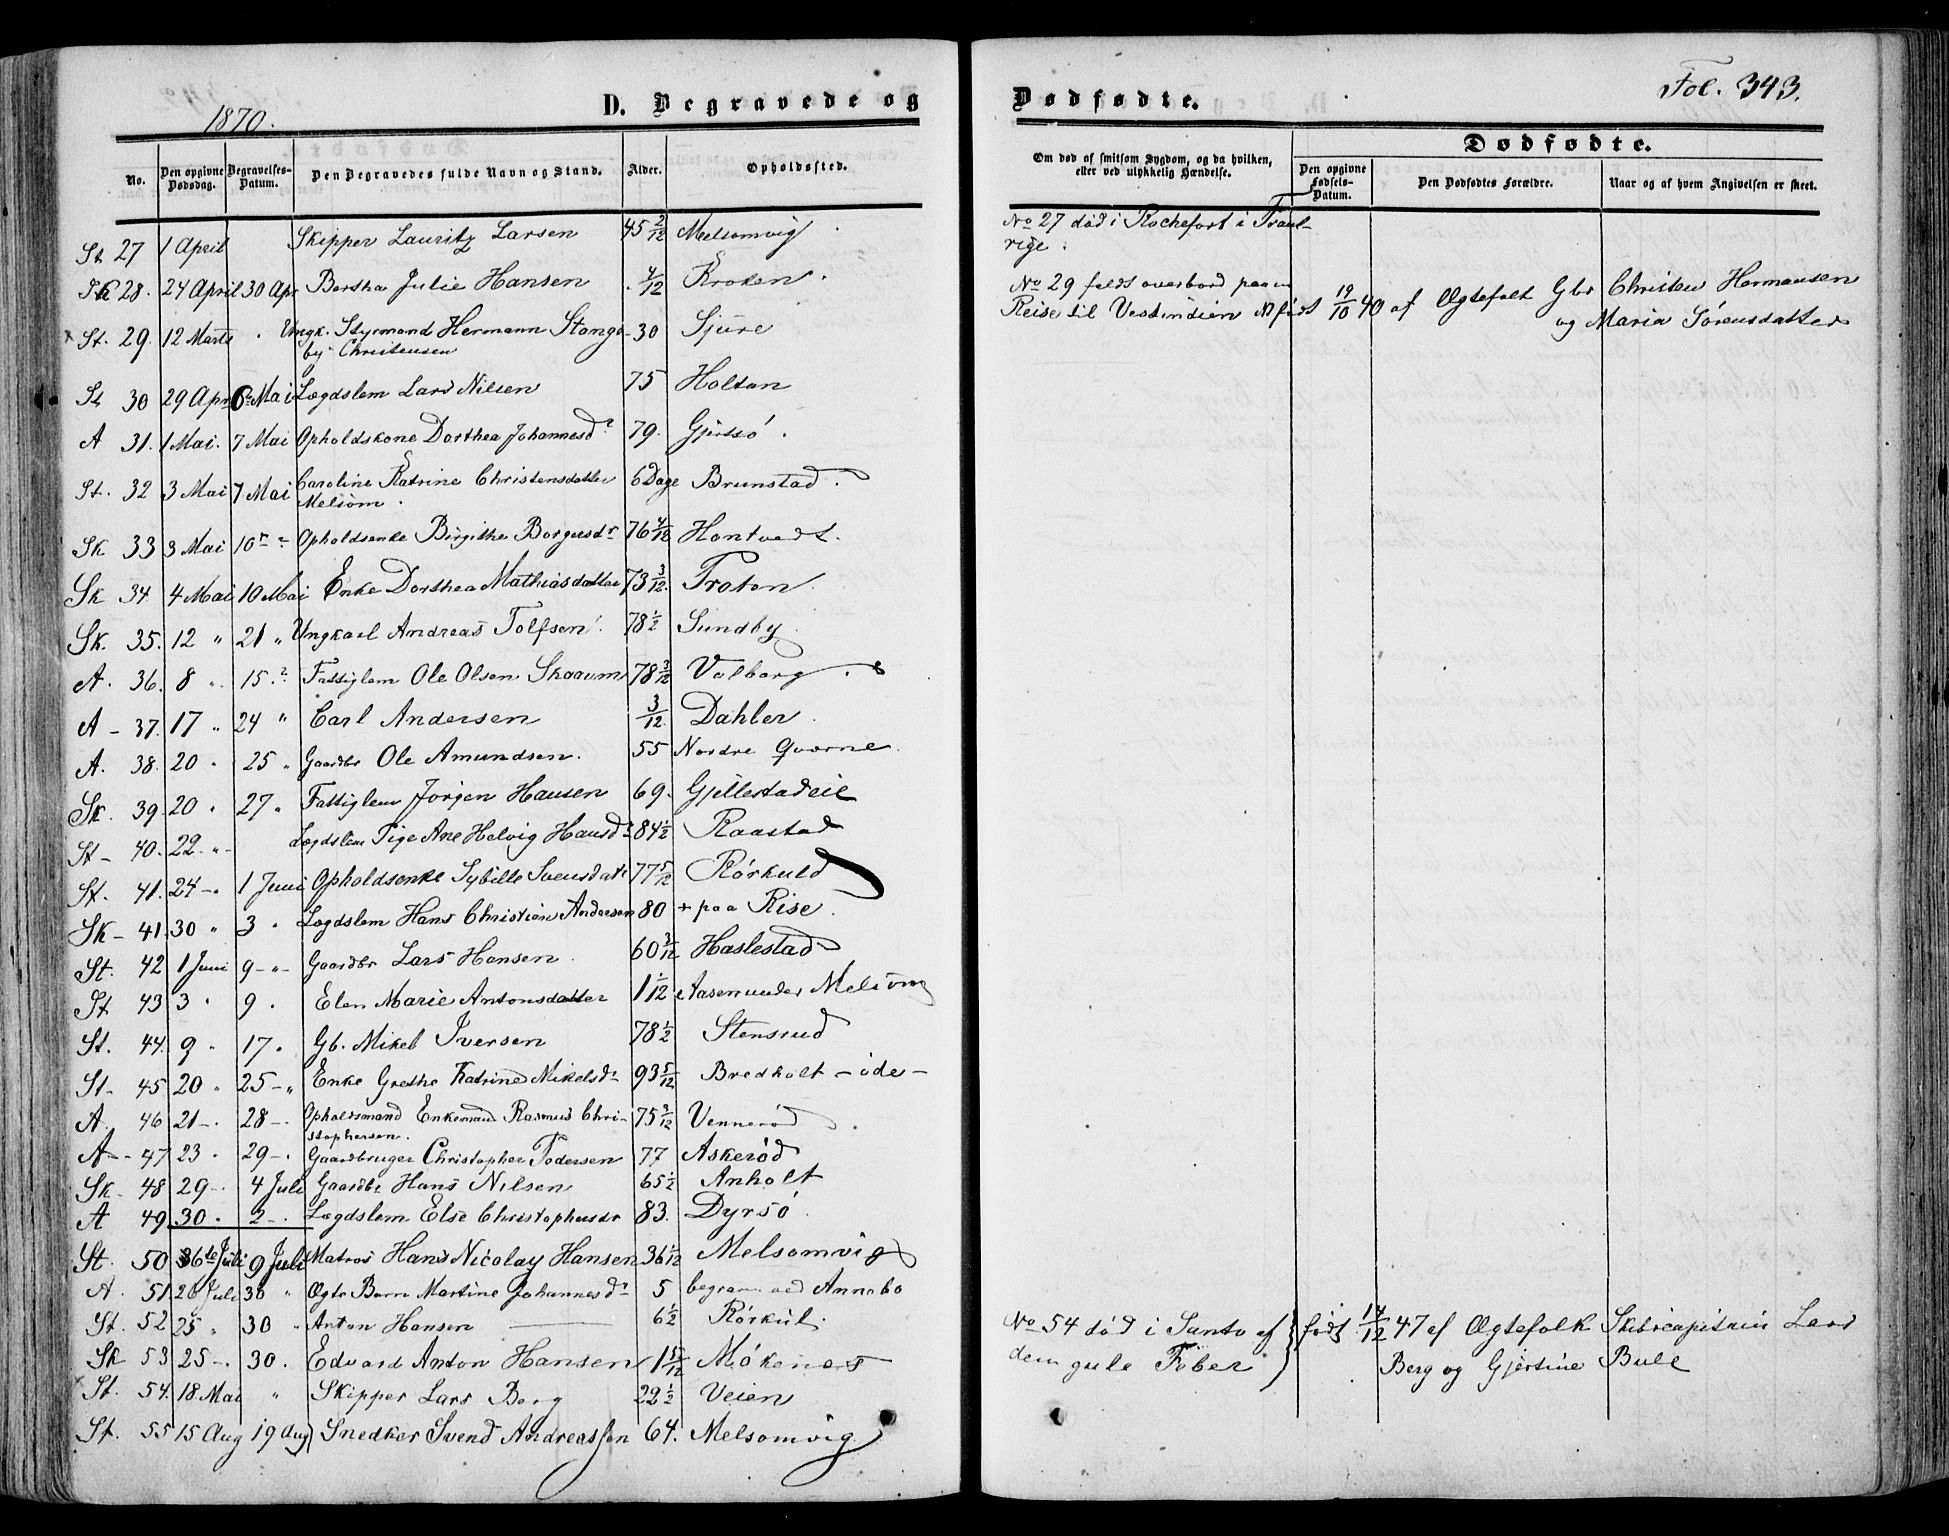 1870.
D. Begravede og
No.
Den opgivne Dødsdag.
Begravelses-Datum.
Den Begravedes fulde Navn og Stand.
Alder.
Opholdssted.
St 27 1 April Skipper Lauritz Larsen 45 2/12 Melsomvig
Sk 28. 24 April 30 Apr Bertha Julie Hansen 4/12 Kroken.
St. 29. 12 Marts Ungk. Styrmand Hermann Stangeby Christensen 30 Sjüre
St 30 29 Apr 6 Mai Lægdslem Lars Nilsen 75 Holtan
A 31. 1 Mai. 7 Mai Opholdskone Dorthea Johannesdr 79. Gjersö.
St. 32 3 Mai 7 Mai Caroline Katrine Christensdatter Melsom. 6 Dage Brunstad.
Sk 33 3 Mai 10 Opholdsenke Birgithe Borgersdr 76 4/12 Hontvedt.
Sk 34 4 Mai 10 Mai Enke Dorthea Mathiasdatter 73 3/12. Troten.
Sk. 35. 12 " 21 " Ungkarl Andreas Tolfsen. 78 1/2 Sundby.
A. 36. 8 " 15. Fattiglem Ole Olsen Skaaum 78 3/12 Valberg.
A - 37. 17 " 24 " Carl Andersen 3/12. Dahler.
A. 38. 20 " 25 " Gaardbr Ole Amundsen. 55 Nordre Qværne.
Sk. 39. 20 " 27 " Fattiglem Jörgen Hansen 69. Gjellestadeie
St - 40. 22 - " - Lægdslem Pige Ane Helvig Hansdr 84 1/2 Raastad
St. 41. 24 - . 1 Juni Opholdsenke Sybille Svensdatr 77 5/12 Rörkuld
Sk - 41. 30 " 3 " Lægdslem Hans Christian Andersen 80 + paa Rise.
St. 42 1 Juni 9 - " - Gaardbr Lars Hansen. 60 3/12 Haslestad
St 43 3 " 9. Elen Marie Antonsdatter 1 1/12 Aasen under Melsomvig
St. 44. 9 " 17. Gb. Mikel Iversen 78 1/2 Stensrud
St - 45 20 " 25 - " Enke Grethe Katrine Mikelsdr 93 5/12 Bredholt - öde -
A. 46 21 - . 28 - . Opholdsmand Enkemand Rasmus Christophersen. 75 9/12 Vennerød.
A - 47 23. 29 - . Gaardbruger Christopher Pedersen 77 Askerød
Sk - 48 29 - . 4 Juli Gaardbr Hans Nilsen 65 1/2 Anholt
A 49 30. 2 - . Lægdslem Else Christophersdr 83. Dyrsö.
St. 50 6te Juli 9 Juli Matros Hans Nicolay Hansen 36 1/12 Melsomvig
A. 51. 26 Juli 30 " Ægte Barn Martine Johannesdr 5 begravn ved Annebo
St. 52 25 " 30 " Anton Hansen 6 1/2 Rörkul.
Sk 53 25 - . 30. Edvard Anton Hansen 1 5/12 Mökenes
St. 54. 18 Mai " Skipper Lars Berg 22 1/2 Veien
St. 55 15 Aug 19 Aug Snedker Svend Andreassen 64. Melsomvig
Dødfødte.
Fol. 343.
Om død af smitsom Sygdom, og da hvilken, eller ved ulykkelig Hændelse.
Dødfødte.
Den opgivne Fødsels-Datum.
Den Dødfødtes Forældre.
Naar og af hvem Angivelsen er skeet.
No 27 död i Rochefort i Frankrige.
No 29 faldt overbord paa en
Reise til Vestindien födt 19/10 40 af Ægtefolk Gbr Christen Hermansen
og Maria Sörensdatter
No 54 död i Santo af födt 14/12 47 af Ægtefolk Skibscapitain Lars
den gule Feber Berg og Gjertine Bull